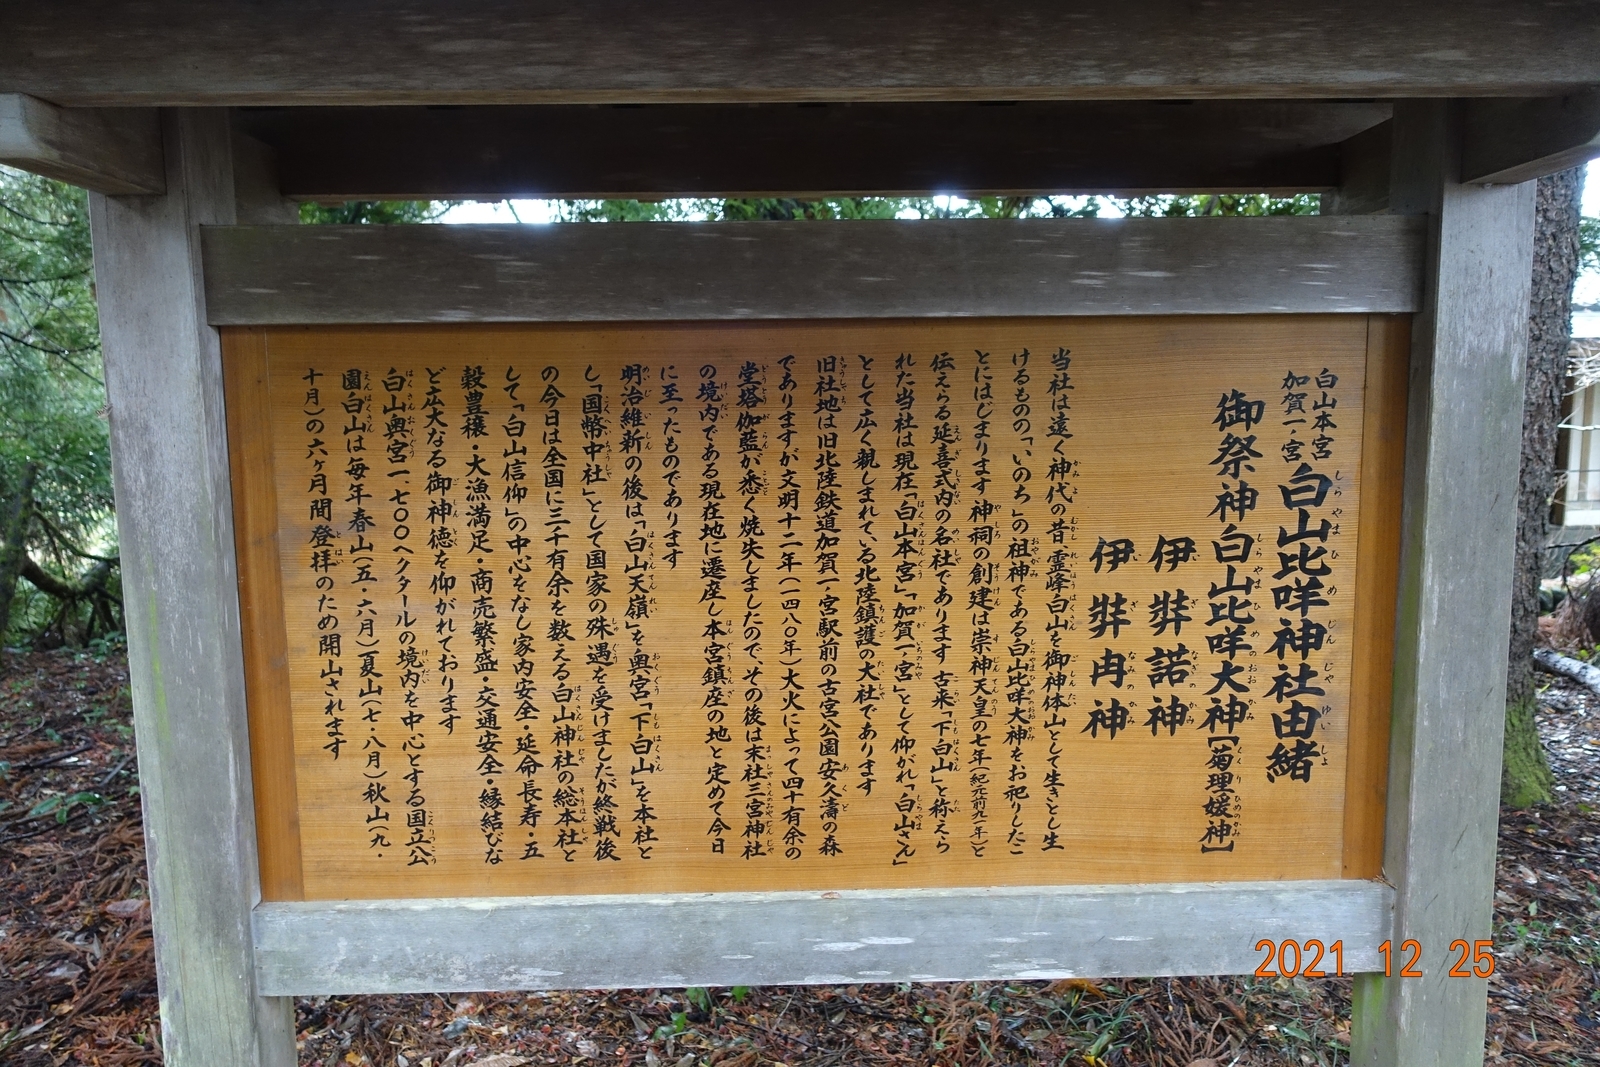 白山本宮
加賀一ノ宮
白山比咩神社由緒
御祭神 白山比咩大神【菊理媛神】
伊弉諾神
伊弉冉神
当社は遠く神代の昔霊峰白山を御神体山として生きとし生
けるものの、「いのち」の祖神である白山比咩大神をお祀りしたこ
とにはじまります 神祠の創建は崇神天皇の七年(紀元前九一年)と
伝えらる延喜式内の名社であります 古来「下白山」と称えら
れた当社は現在「白山本宮」「加賀一ノ宮」として仰がれ「白山さん」
として広く親しまれている北陸鎮護の大社であります
旧社地は旧北陸鉄道加賀一ノ宮駅前の古宮公園安久濤の森
でありますが文明十二年(一四八〇年)大火によって四十有余の
堂塔伽藍が悉く焼失しましたので、その後は末社三宮神社
の境内である現在地に遷座し本宮鎮座の地と定めて今日
に至ったものであります
明治維新の後は「白山天嶺」を奥宮「下白山」を本社と
し「国幣中社」として国家の殊遇を受けましたが終戦後
の今日は全国に三千有余を数える白山神社の総本社と
して「白山信仰」の中心をなし家内安全・延命長寿・五
穀豊穣・大漁満足・商売繁盛・交通安全・縁結びな
ど広大なる御神徳を仰がれております
白山奥宮一、七〇〇ヘクタールの境内を中心とする国立公
園白山は毎年春山(五・六月)夏山(七・八月)秋山(九・
十月)の六ヶ月間登拝のため開山されます
2021 12 25